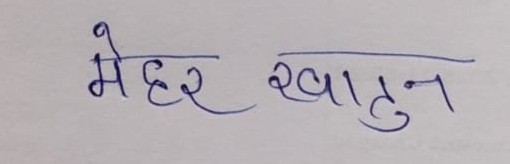 मेहर खातुन